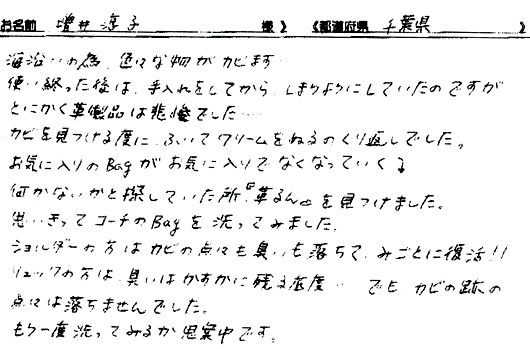 お名前 増井 涼子 様】 【都道府県 千葉県 】
海沿いの為、色々な物がカビます
使い終った後は、手入れをしてから、しまうようにしていたのですが
とにかく革製品は悲惨でした…
カビを見つける度に、ふいてクリームをぬるのくり返しでした。
お気に入りのBagがお気に入りでなくなっていく↓
何かないかと探していた所『革るん』を見つけました。
思いきってコーチのBagを洗ってみました。
ショルダーの方はカビの点々も臭いも落ちて、みごとに復活!!
リュックの方は、臭いはかすかに残る程度… でも カビの跡の
点々は落ちませんでした。
もう一度洗ってみるか思案中です。